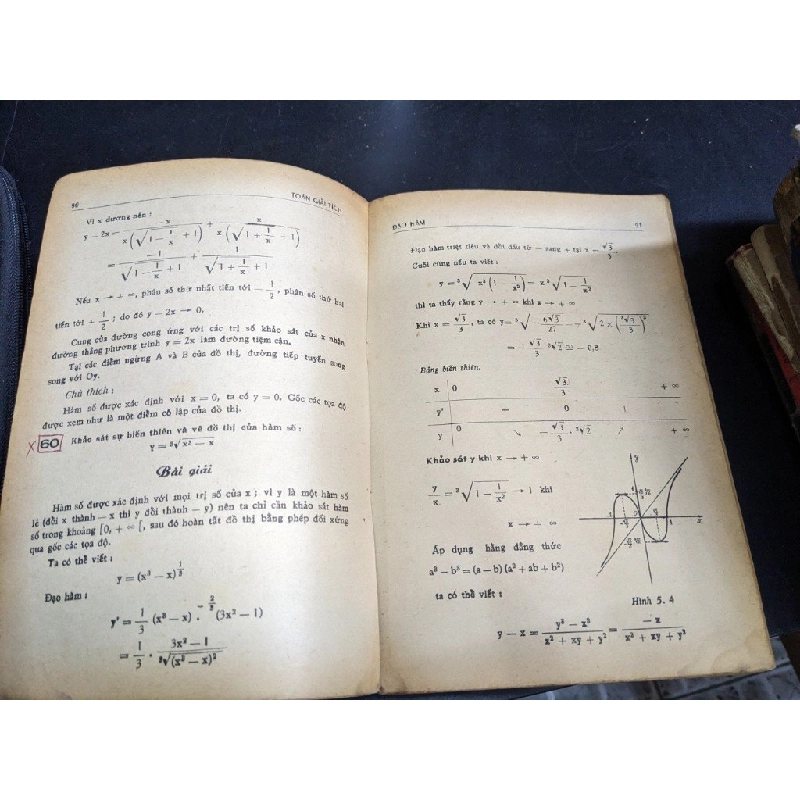 50 TOÁN GIẢI TÍCH
Vì x dương nên :
y − 2x = −x / x(√(1 − 1/x) + 1) + x / x(√(1 + 1/x) + 1)
= −1 / (√(1 − 1/x) + 1) + 1 / (√(1 + 1/x) + 1)
Nếu x → + ∞, phân số thứ nhất tiến tới − 1/2, phân số thứ hai
tiến tới + 1/2 ; do đó y − 2x → 0.
Cung của đường cong ứng với các trị số khảo sát của x nhận
đường thẳng phương trình y = 2x làm đường tiệm cận.
Tại các điểm ngừng A và B của đồ thị, đường tiếp tuyến song
song với Oy.
Chú thích :
Hàm số được xác định với x = 0, ta có y = 0. Gốc các tọa độ
được xem như là một điểm cô lập của đồ thị.
x 60 Khảo sát sự biến thiên và vẽ đồ thị của hàm số :
y = ³√(x³ − x)
Bài giải
Hàm số được xác định với mọi trị số của x ; vì y là một hàm số
lẻ (đổi x thành − x thì y đổi thành − y) nên ta chỉ cần khảo sát hàm
số trong khoảng [0, + ∞ [, sau đó hoàn tất đồ thị bằng phép đối xứng
qua gốc các tọa độ.
Ta có thể viết :
y = (x³ − x)^(1/3)
Đạo hàm :
y' = 1/3 (x³ − x)^(−2/3) (3x² − 1)
= 1/3 · (3x² − 1) / ³√(x³ − x)²
ĐẠO HÀM
Đạo hàm triệt tiêu và đổi dấu từ − sang + tại x = √3/3.
Cuối cùng nếu ta viết :
y = ³√(x³(1 − 1/x²)) = x ³√(1 − 1/x²)
thì ta thấy rằng y → + ∞ khi x → + ∞
Khi x = √3/3, ta có y =
= − √3/3 ³√2 ≃ − 0,8
Bảng biến thiên.
x 0 √3/3 + ∞
y' − 0
y 0 ↘ − √3/3 · ³√2 + ∞
Khảo sát y khi x → + ∞
y/x = ³√(1 − 1/x²) → 1 khi
x → + ∞
Áp dụng hằng đẳng thức
a³ − b³ = (a − b) (a² + ab + b²)
ta có thể viết :
Hình 5. 4
y − x = (y³ − x³) / (x² + xy + y²) = −x / (x² + xy + y²)